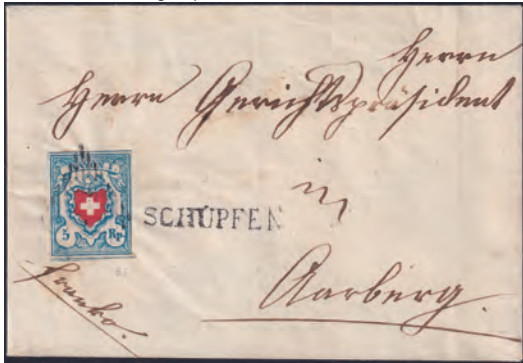 Herrn
Herrn Gerichtspräsident
in
SCHÜPFEN
5 Rp.
Aarberg.
franko.